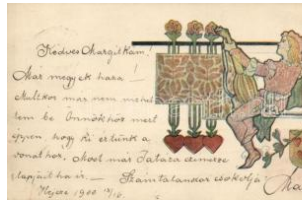 Kedves Margitkám!
Már megyek haza!
Multkor már nem mehettem
be Önnökhöz mert
éppen hogy ki értünk a
vonathoz. Most már Tatára
lapjait ha is. —
Számtalanszor csókolja
1900